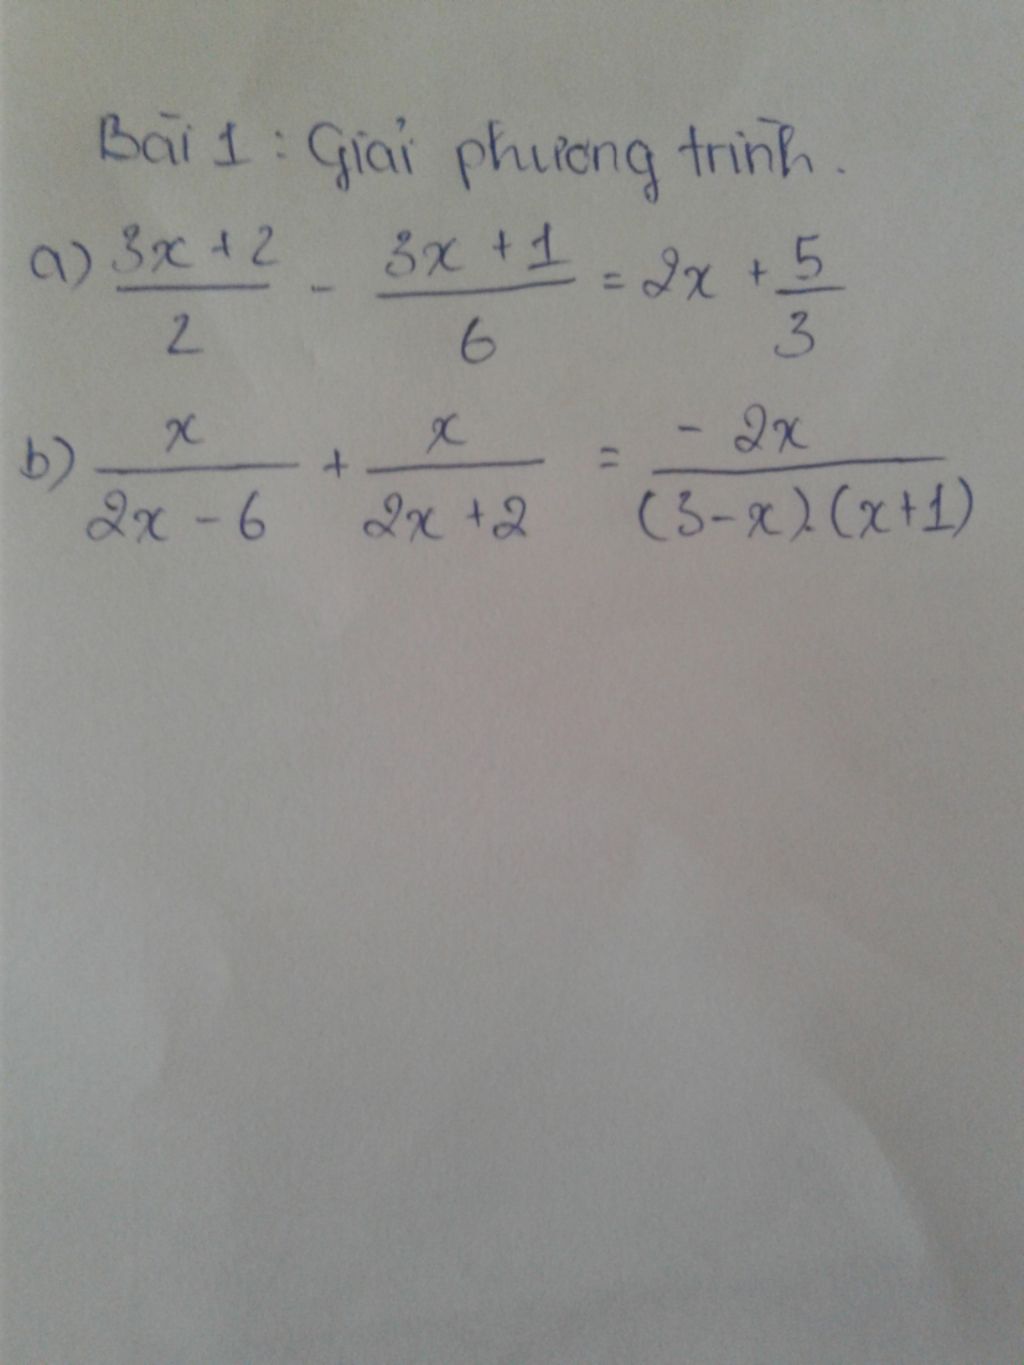 Bài 1 : Giải phương trình.
a) \frac{3x+2}{2} - \frac{3x+1}{6} = 2x + \frac{5}{3}
b) \frac{x}{2x-6} + \frac{x}{2x+2} = \frac{-2x}{(3-x).(x+1)}